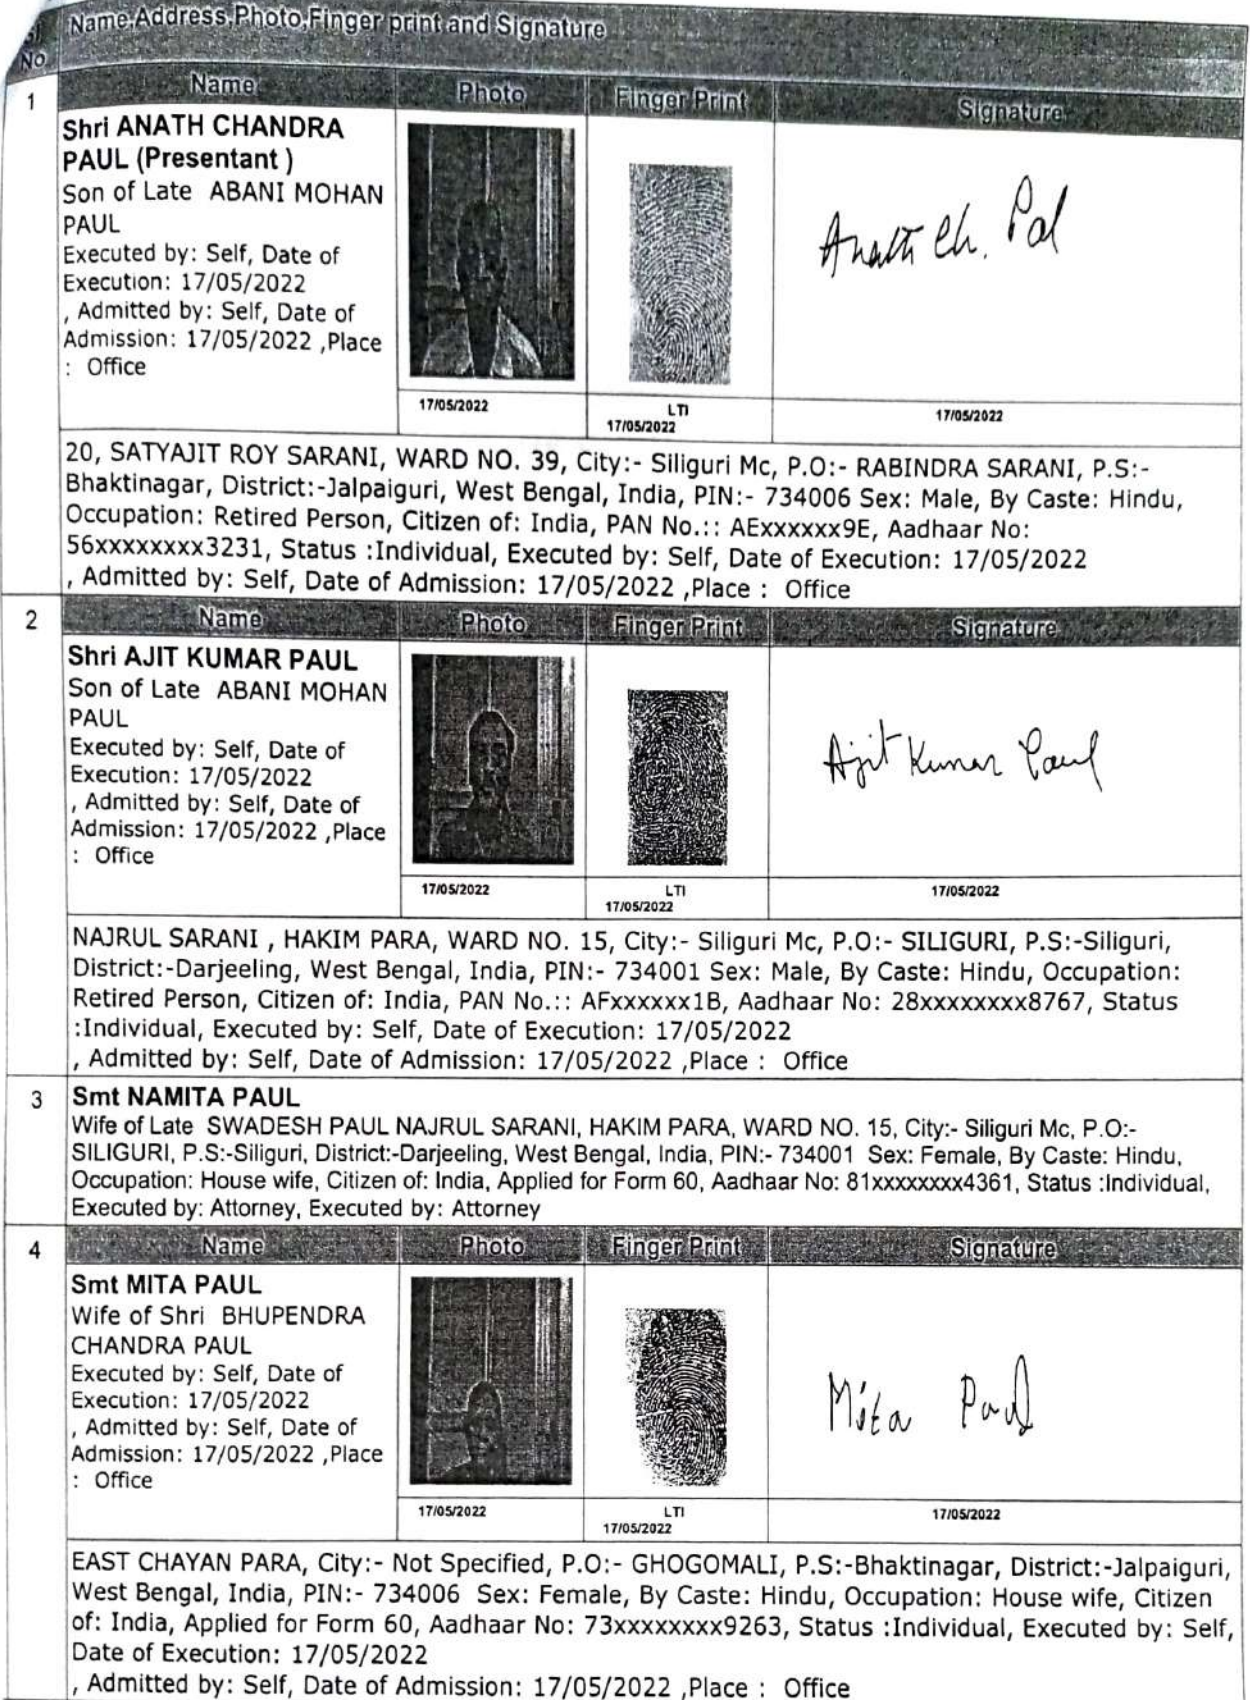 Sl
No
Name,Address,Photo,Finger print and Signature
1
Name
Photo
Finger Print
Signature
Shri ANATH CHANDRA
PAUL (Presentant )
Son of Late ABANI MOHAN
PAUL
Executed by: Self, Date of
Execution: 17/05/2022
, Admitted by: Self, Date of
Admission: 17/05/2022 ,Place
: Office
Anath Ch. Pal
17/05/2022
LTI
17/05/2022
17/05/2022
20, SATYAJIT ROY SARANI, WARD NO. 39, City:- Siliguri Mc, P.O:- RABINDRA SARANI, P.S:-
Bhaktinagar, District:-Jalpaiguri, West Bengal, India, PIN:- 734006 Sex: Male, By Caste: Hindu,
Occupation: Retired Person, Citizen of: India, PAN No.:: AExxxxxx9E, Aadhaar No:
56xxxxxxxx3231, Status :Individual, Executed by: Self, Date of Execution: 17/05/2022
, Admitted by: Self, Date of Admission: 17/05/2022 ,Place : Office
2
Name
Photo
Finger Print
Signature
Shri AJIT KUMAR PAUL
Son of Late ABANI MOHAN
PAUL
Executed by: Self, Date of
Execution: 17/05/2022
, Admitted by: Self, Date of
Admission: 17/05/2022 ,Place
: Office
Ajit Kumar Paul
17/05/2022
LTI
17/05/2022
17/05/2022
NAJRUL SARANI , HAKIM PARA, WARD NO. 15, City:- Siliguri Mc, P.O:- SILIGURI, P.S:-Siliguri,
District:-Darjeeling, West Bengal, India, PIN:- 734001 Sex: Male, By Caste: Hindu, Occupation:
Retired Person, Citizen of: India, PAN No.:: AFxxxxxx1B, Aadhaar No: 28xxxxxxxx8767, Status
:Individual, Executed by: Self, Date of Execution: 17/05/2022
, Admitted by: Self, Date of Admission: 17/05/2022 ,Place : Office
3
Smt NAMITA PAUL
Wife of Late SWADESH PAUL NAJRUL SARANI, HAKIM PARA, WARD NO. 15, City:- Siliguri Mc, P.O:-
SILIGURI, P.S:-Siliguri, District:-Darjeeling, West Bengal, India, PIN:- 734001 Sex: Female, By Caste: Hindu,
Occupation: House wife, Citizen of: India, Applied for Form 60, Aadhaar No: 81xxxxxxxx4361, Status :Individual,
Executed by: Attorney, Executed by: Attorney
4
Name
Photo
Finger Print
Signature
Smt MITA PAUL
Wife of Shri BHUPENDRA
CHANDRA PAUL
Executed by: Self, Date of
Execution: 17/05/2022
, Admitted by: Self, Date of
Admission: 17/05/2022 ,Place
: Office
Mita Paul
17/05/2022
LTI
17/05/2022
17/05/2022
EAST CHAYAN PARA, City:- Not Specified, P.O:- GHOGOMALI, P.S:-Bhaktinagar, District:-Jalpaiguri,
West Bengal, India, PIN:- 734006 Sex: Female, By Caste: Hindu, Occupation: House wife, Citizen
of: India, Applied for Form 60, Aadhaar No: 73xxxxxxxx9263, Status :Individual, Executed by: Self,
Date of Execution: 17/05/2022
, Admitted by: Self, Date of Admission: 17/05/2022 ,Place : Office